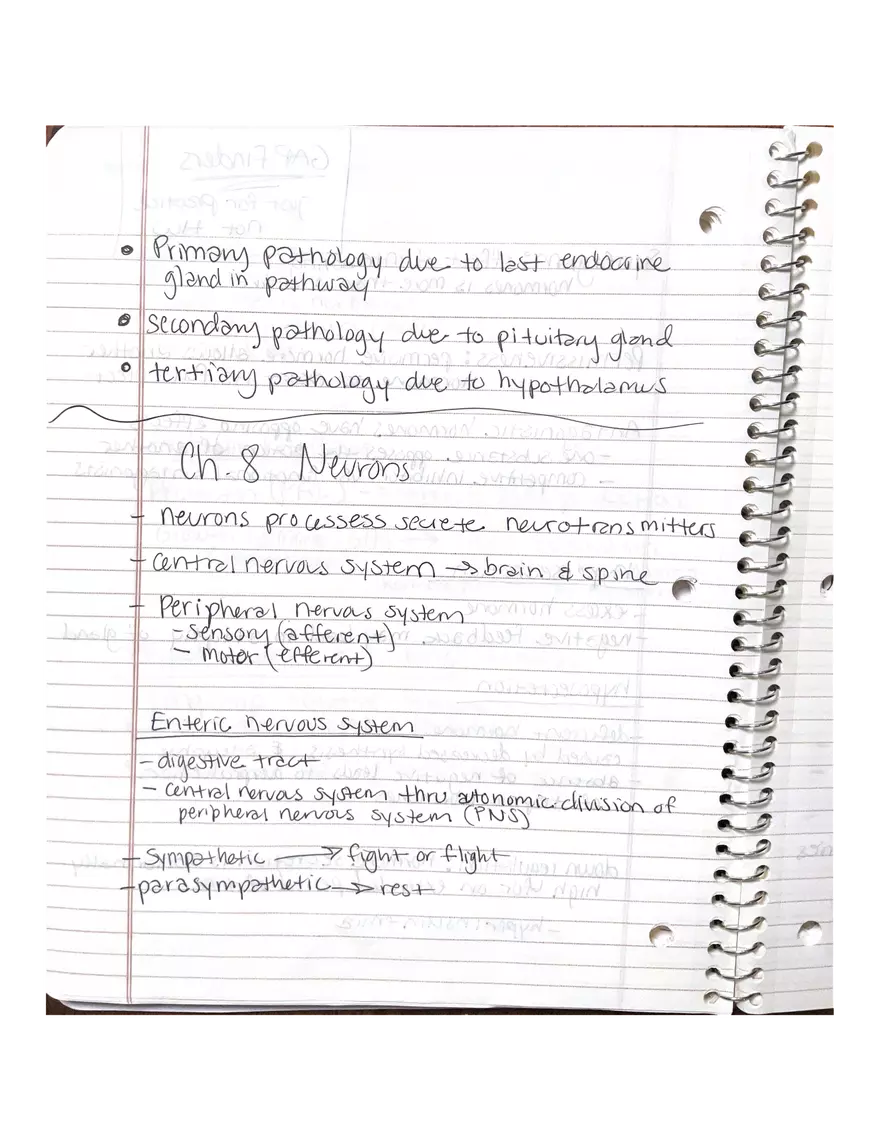 • Primary pathology due to last endocrine
gland in pathway
• secondary pathology due to pituitary gland
• tertiary pathology due to hypothalamus
Ch. 8 Neurons
- neurons processess secrete neurotransmitters
- central nervous system → brain & spine
- Peripheral nervous system
- sensory (afferent)
- motor (efferent)
Enteric nervous system
- digestive tract
- central nervous system thru atonomic division of
peripheral nervous system (PNS)
- Sympathetic → fight or flight
- parasympathetic → rest